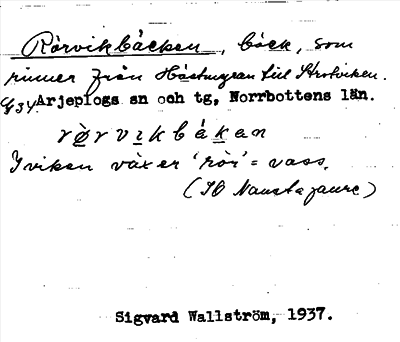 Rörvikbäcken, bäck, som
rinner från Hästmyran till Storviken.
Arjeplogs sn och tg, Norrbottens län.
rø̀rvıkbäkan
I viken växer 'rör' = vass.
(IO Naustajaure)
Sigvard Wallström, 1937.